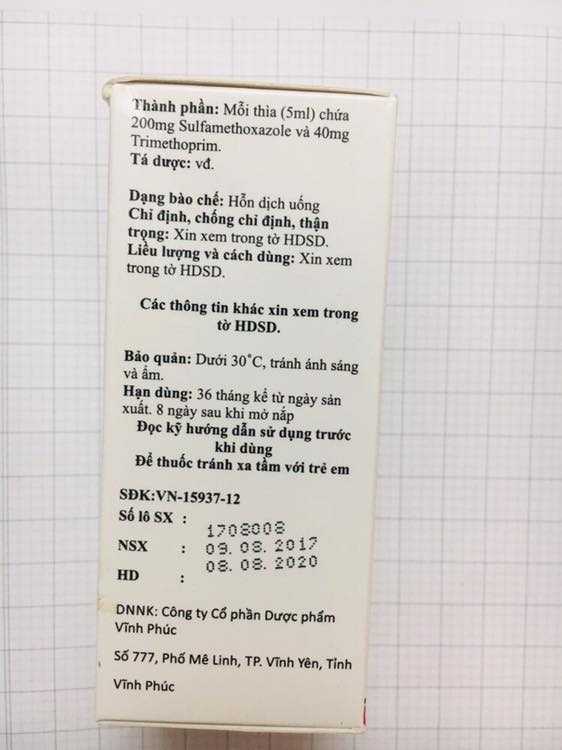 Thành phần: Mỗi thìa (5ml) chứa
200mg Sulfamethoxazole và 40mg
Trimethoprim.
Tá dược: vđ.
Dạng bào chế: Hỗn dịch uống
Chỉ định, chống chỉ định, thận
trọng: Xin xem trong tờ HDSD.
Liều lượng và cách dùng: Xin xem
trong tờ HDSD.
Các thông tin khác xin xem trong
tờ HDSD.
Bảo quản: Dưới 30°C, tránh ánh sáng
và ẩm.
Hạn dùng: 36 tháng kể từ ngày sản
xuất. 8 ngày sau khi mở nắp
Đọc kỹ hướng dẫn sử dụng trước
khi dùng
Để thuốc tránh xa tầm với trẻ em
SĐK:VN-15937-12
Số lô SX : 1708008
NSX : 09. 08. 2017
HD : 08. 08. 2020
DNNK: Công ty Cổ phần Dược phẩm
Vĩnh Phúc
Số 777, Phố Mê Linh, TP. Vĩnh Yên, Tỉnh
Vĩnh Phúc